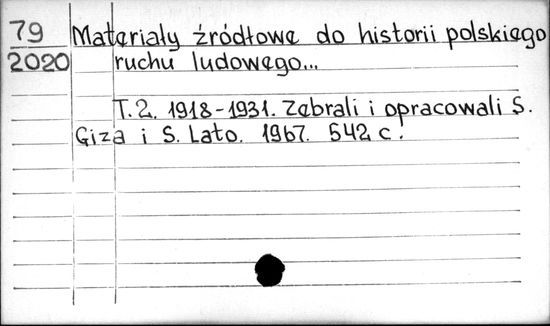 79
2020
Materiały źródłowe do historii polskiego
ruchu ludowego...
T. 2. 1918-1931. Zebrali i opracowali S.
Giza i S. Lato. 1967. 542 c.